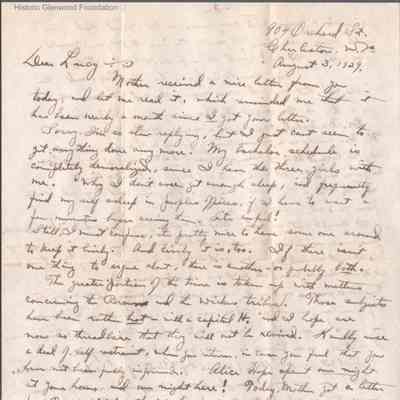 Historic Glenwood Foundation
904 Orchard St.
Charleston, W. Va
August 3, 1929.
Dear Lucy
Mother received a nice letter from you
today, and let me read it, which reminded me that it
has been nearly a month since I got your letter.
Sorry I'm so slow replying, but I just can't seem to
get anything done any more. My bachelor schedule is
completely demoralized, since I have the three girls with
me. Why I don't even get enough sleep, and frequently
find myself asleep in peoples offices, if I have to wait a
few minutes before seeing them. It's awful!
Still, I must confess, it's pretty nice to have some one around
to keep it lively. And lively it is, too. If there isn't
one thing to argue about, there is another - or probably both.
The greater portion of the time is taken up with matters
concerning the and the Wickes tribes. Those subjects
have been rather hot - with a capital H, and I hope are
now so threadbare that they will not be revived. Kindly use
a deal of self restraint, when you return, in case you find that you
have not been fully informed. Alice Hope spent one night
at your house, and one night here! Today, Mother got a letter